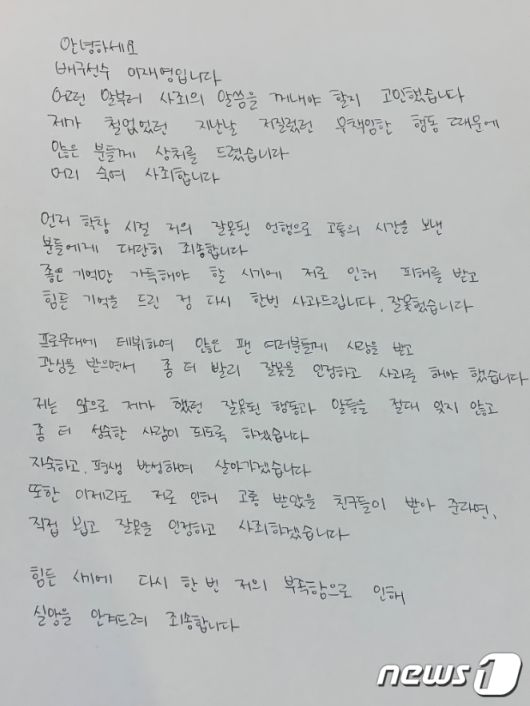 안녕하세요
배구선수 이재영입니다
어떤 말부터 사죄의 말씀을 꺼내야 할지 고민했습니다
제가 철없었던 지난날 저질렀던 무책임한 행동 때문에
많은 분들께 상처를 드렸습니다
머리 숙여 사죄합니다
먼저 학창 시절 저의 잘못된 언행으로 고통의 시간을 보낸
분들에게 대단히 죄송합니다
좋은 기억만 가득해야 할 시기에 저로 인해 피해를 받고
힘든 기억을 드린 점 다시 한번 사과드립니다. 잘못했습니다
프로무대에 데뷔하여 많은 팬 여러분들께 사랑을 받고
관심을 받으면서 좀 더 빨리 잘못을 인정하고 사과를 해야 했습니다
저는 앞으로 제가 했던 잘못된 행동과 말들을 절대 잊지 않고
좀 더 성숙한 사람이 되도록 하겠습니다
자숙하고, 평생 반성하며 살아가겠습니다
또한 이제라도 저로 인해 고통 받았을 친구들이 받아 준다면,
직접 뵙고 잘못을 인정하고 사죄하겠습니다
힘든 시기에 다시 한 번 저의 부족함으로 인해
실망을 안겨드려 죄송합니다
news1